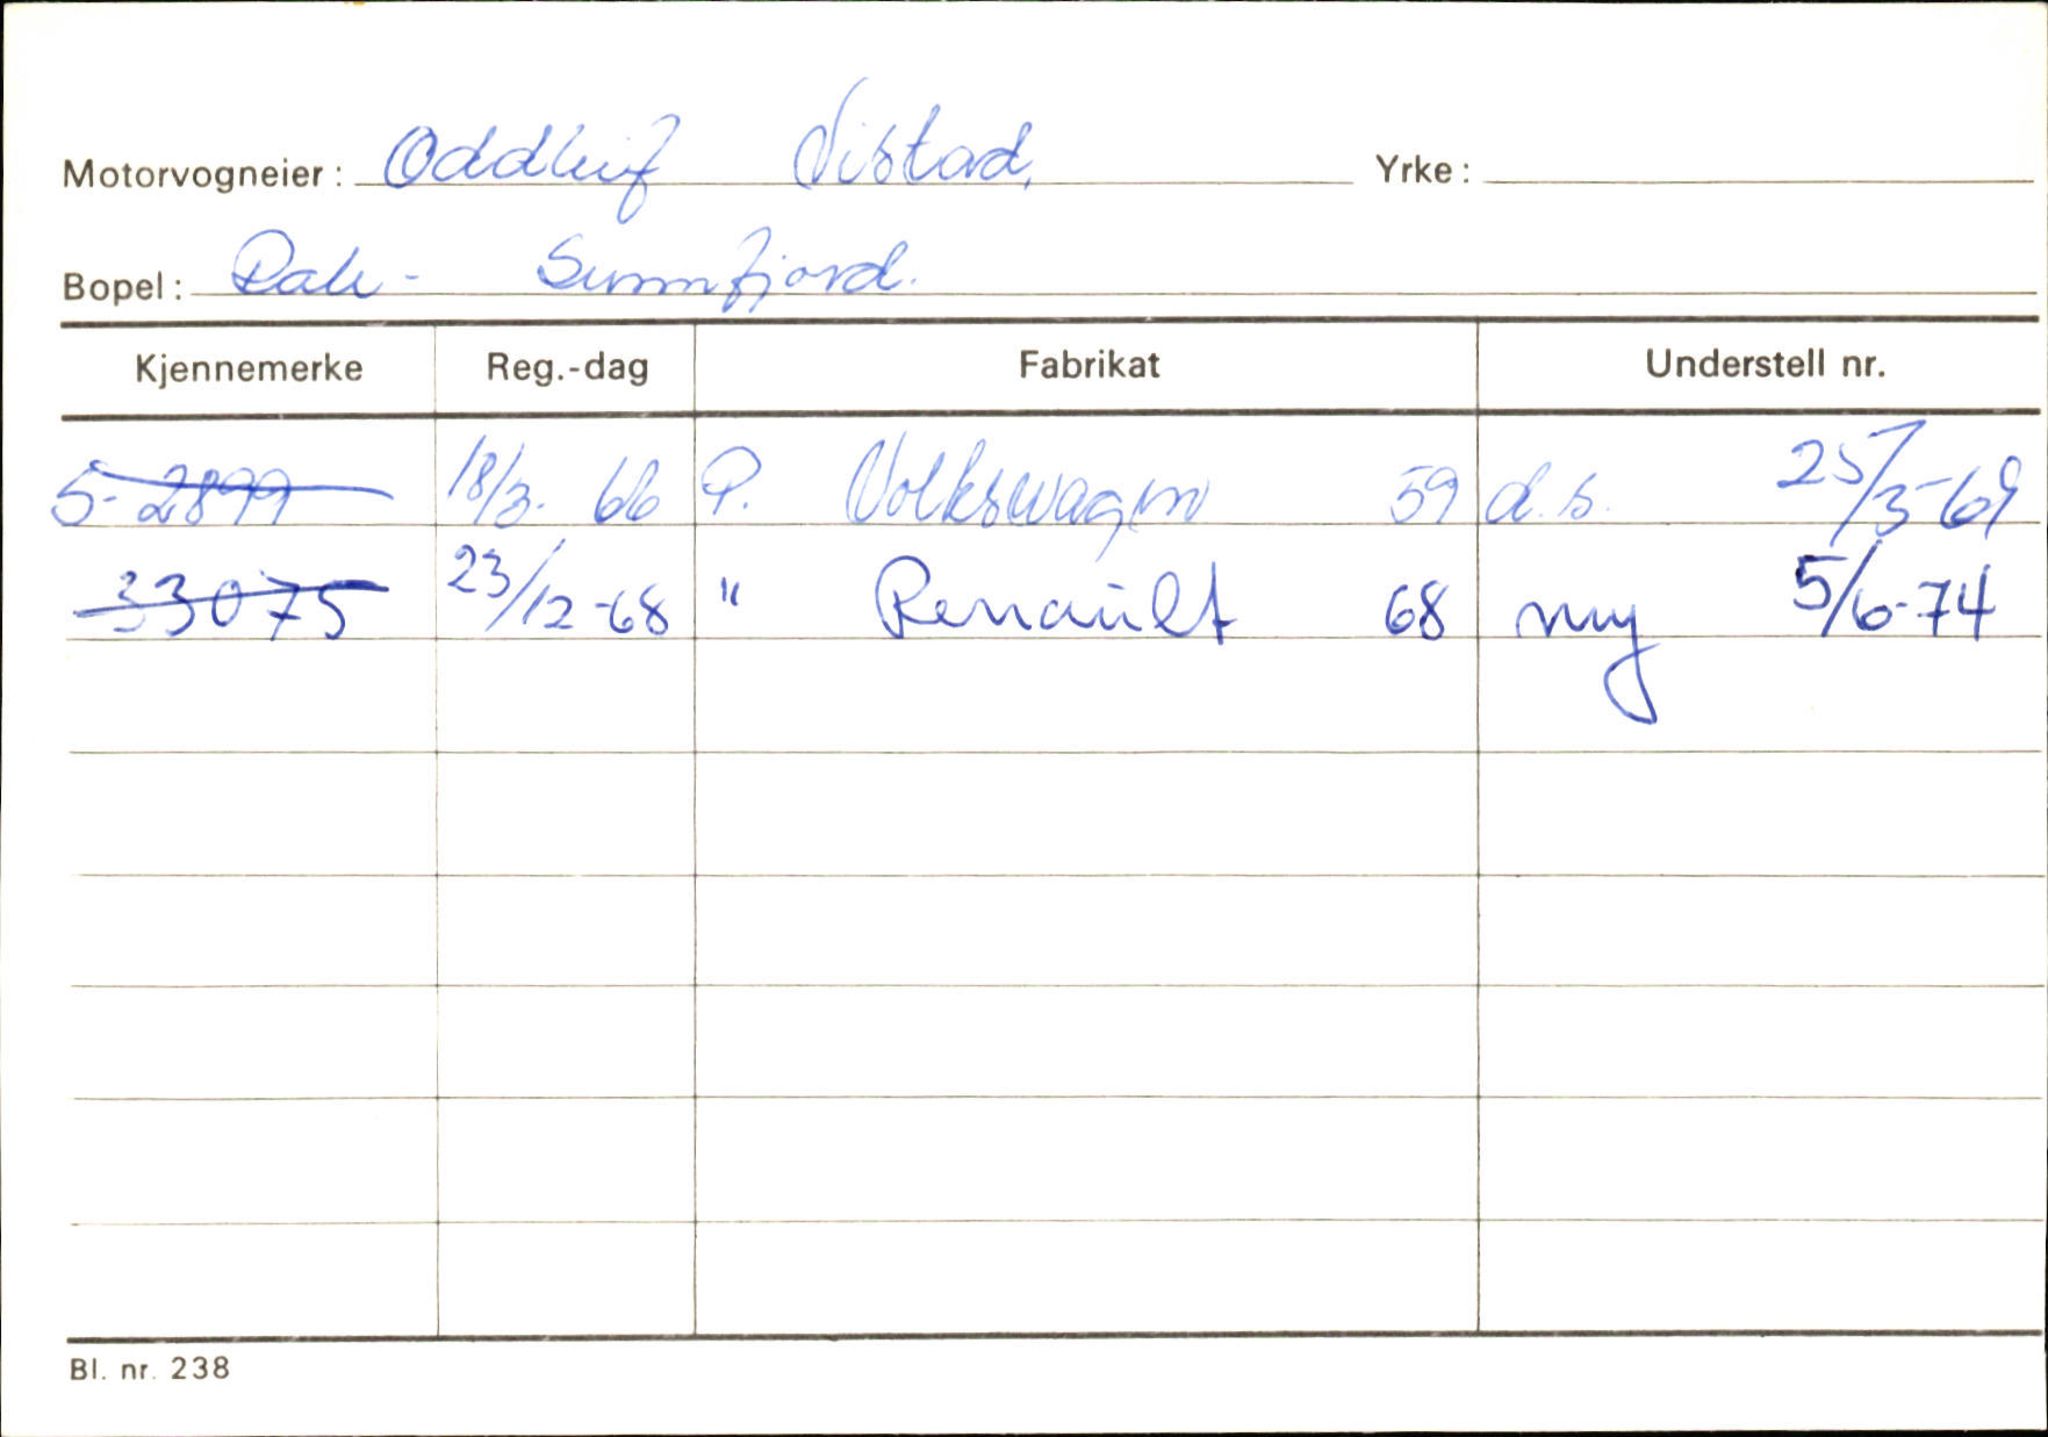 Motorvogneier: Oddleif Vistad,
Yrke:
Bopel: Dale - Sunnfjord.
Kjennemerke Reg.-dag Fabrikat Understell nr.
S-2899 18/3-66 P. Volkswagen 59 d.s. 25/3-69
33075 23/12-68 " Renault 68 ny 5/6-74
Bl. nr. 238